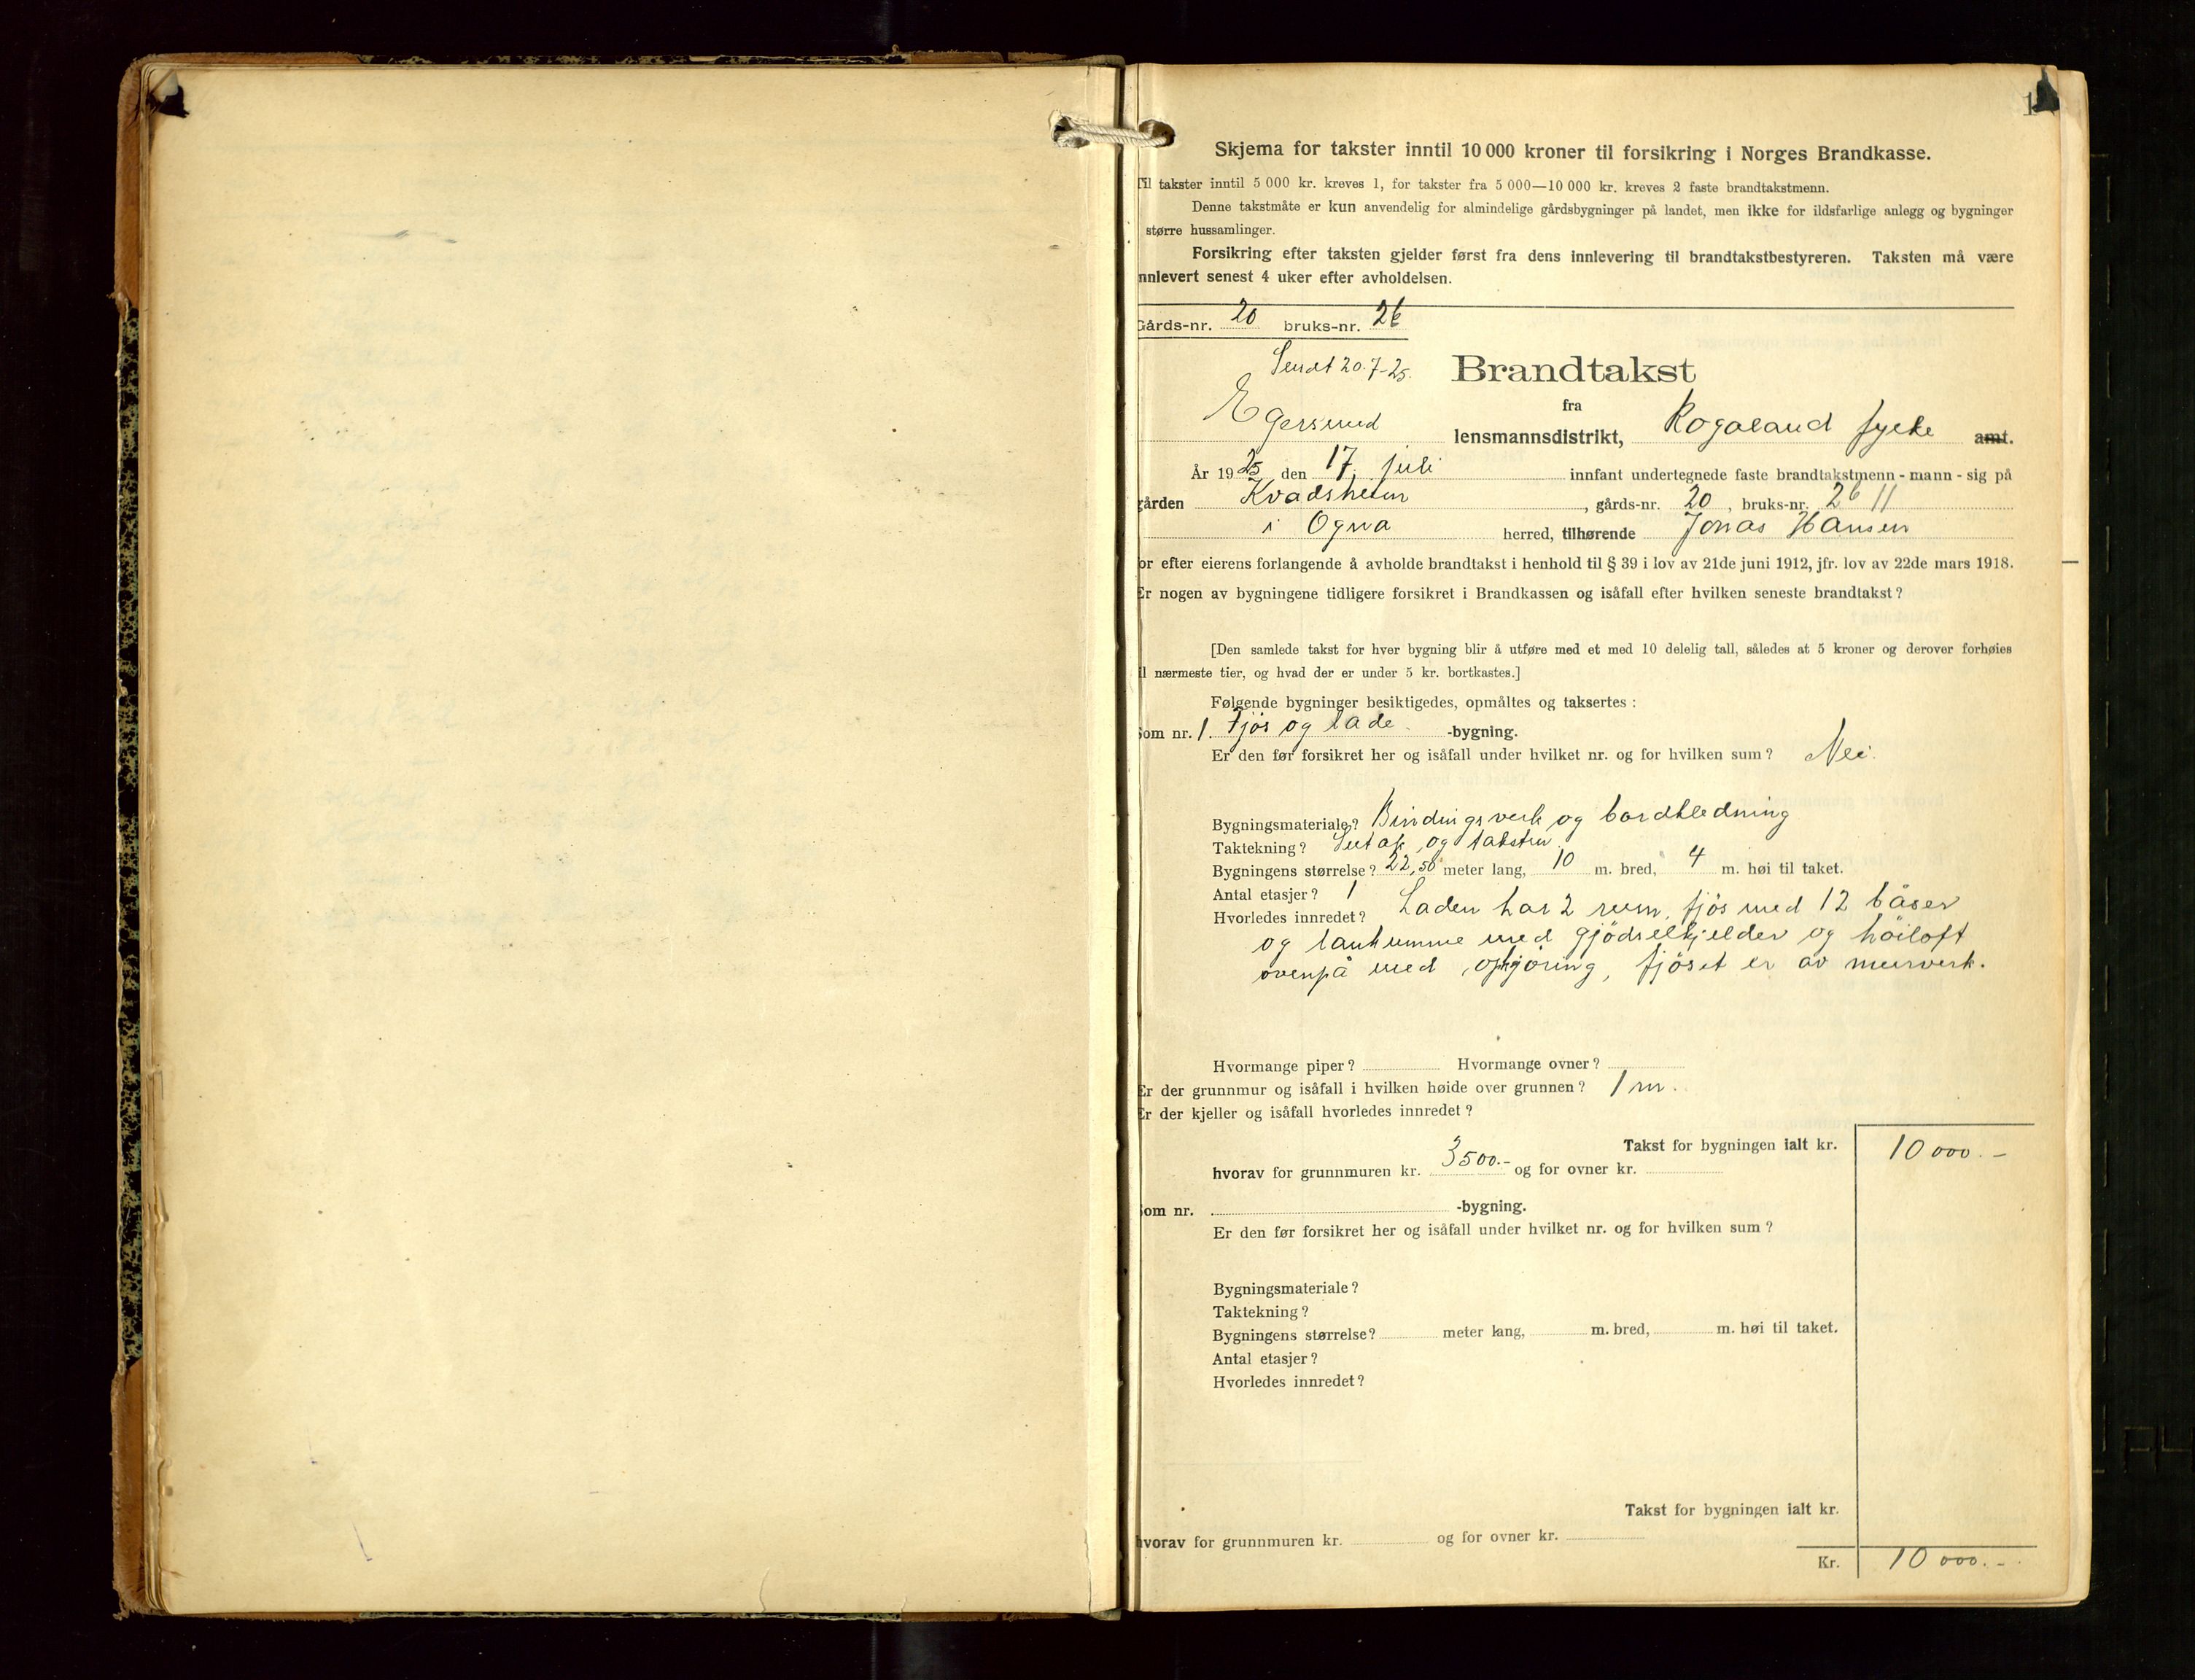 1
Skjema for takster inntil 10 000 kroner til forsikring i Norges Brandkasse.
Til takster inntil 5 000 kr. kreves 1, for takster fra 5 000—10 000 kr. kreves 2 faste brandtakstmenn.
Denne takstmåte er kun anvendelig for almindelige gårdsbygninger på landet, men ikke for ildsfarlige anlegg og bygninger
større hussamlinger.
Forsikring efter taksten gjelder først fra dens innlevering til brandtakstbestyreren. Taksten må være
innlevert senest 4 uker efter avholdelsen.
Gårds-nr. 20 bruks-nr. 26
Sendt 20.7-25.
Brandtakst
fra
Egersund lensmannsdistrikt, Rogaland fylke amt.
År 1925 den 17. juli innfant undertegnede faste brandtakstmenn - mann - sig på
gården Kvadsheim, gårds-nr. 20, bruks-nr. 26 11
i Ogna herred, tilhørende Jonas Hansen
for efter eierens forlangende å avholde brandtakst i henhold til § 39 i lov av 21de juni 1912, jfr. lov av 22de mars 1918.
Er nogen av bygningene tidligere forsikret i Brandkassen og isåfall efter hvilken seneste brandtakst?
[Den samlede takst for hver bygning blir å utføre med et med 10 delelig tall, således at 5 kroner og derover forhøies
til nærmeste tier, og hvad der er under 5 kr. bortkastes.]
Følgende bygninger besiktigedes, opmåltes og taksertes :
Som nr. 1. Fjös og lade. -bygning.
Er den før forsikret her og isåfall under hvilket nr. og for hvilken sum? Nei.
Bygningsmateriale? Bindingsverk og bordkledning
Taktekning? og taksten
Bygningens størrelse? 22,50 meter lang, 10 m. bred, 4 m. høi til taket.
Antal etasjer? 1
Hvorledes innredet? Laden har 2 rum, fjös med 12 båser
og med gjödselkjelder og höiloft
ovenpå med opkjöring, fjöset er av murverk.
Hvormange piper? Hvormange ovner?
Er der grunnmur og isåfall i hvilken høide over grunnen? 1 m.
Er der kjeller og isåfall hvorledes innredet?
Takst for bygningen ialt kr. 10 000.-
hvorav for grunnmuren kr. 3500.- og for ovner kr.
Som nr. -bygning.
Er den før forsikret her og isåfall under hvilket nr. og for hvilken sum?
Bygningsmateriale?
Taktekning?
Bygningens størrelse? meter lang, m. bred, m. høi til taket.
Antal etasjer?
Hvorledes innredet?
Takst for bygningen ialt kr.
hvorav for grunnmuren kr. og for ovner kr.
Kr. 10 000.-